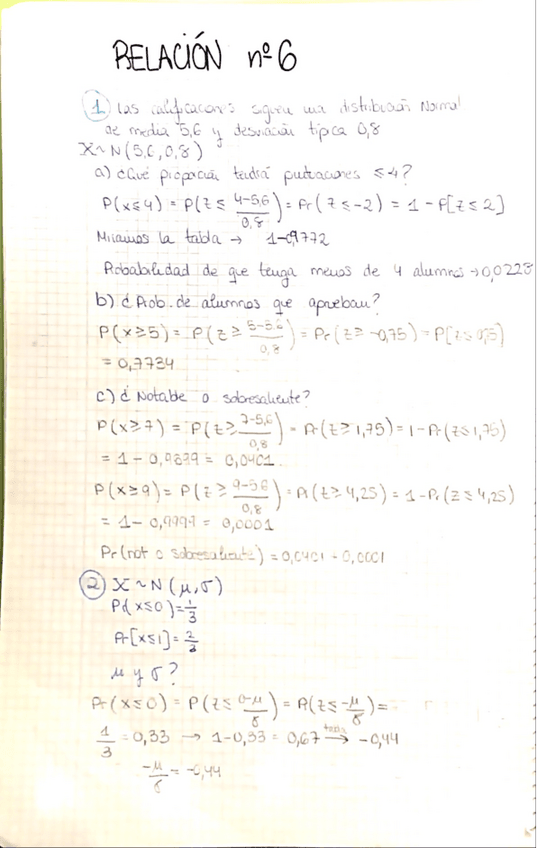 RELACIÓN nº 6
1 Las calificaciones siguen una distribución Normal
de media 5,6 y desviación típica 0,8
X~N(5,6,0,8)
a) ¿Qué proporción tendrá puntuaciones ≤4?
P(x≤4) = P(z ≤ 4-5,6/0,8) = Pr(z ≤ -2) = 1 - P[z ≤ 2]
Miramos la tabla → 1-0,9772
Probabilidad de que tenga menos de 4 alumnos → 0,0228
b) ¿Prob. de alumnos que aprueban?
P(x≥5) = P(z ≥ 5-5,6/0,8) = Pr(z ≥ -0,75) = P[z ≤ 0,75]
= 0,7734
c) ¿Notable o sobresaliente?
P(x≥7) = P(z ≥ 7-5,6/0,8) = Pr(z ≥ 1,75) = 1 - Pr(z ≤ 1,75)
= 1 - 0,9599 = 0,0401
P(x≥9) = P(z ≥ 9-5,6/0,8) = Pr(z ≥ 4,25) = 1 - Pr(z ≤ 4,25)
= 1 - 0,9999 = 0,0001
Pr(not o sobresaliente) = 0,0401 - 0,0001
2 X ~ N(μ,σ)
Pr(x≤0) = 1/3
Pr[x≤1] = 2/3
μ y σ?
Pr(x≤0) = P(z ≤ 0-μ/σ) = Pr(z ≤ -μ/σ) =
1/3 = 0,33 → 1-0,33 = 0,67 tabla → -0,44
-μ/σ = -0,44